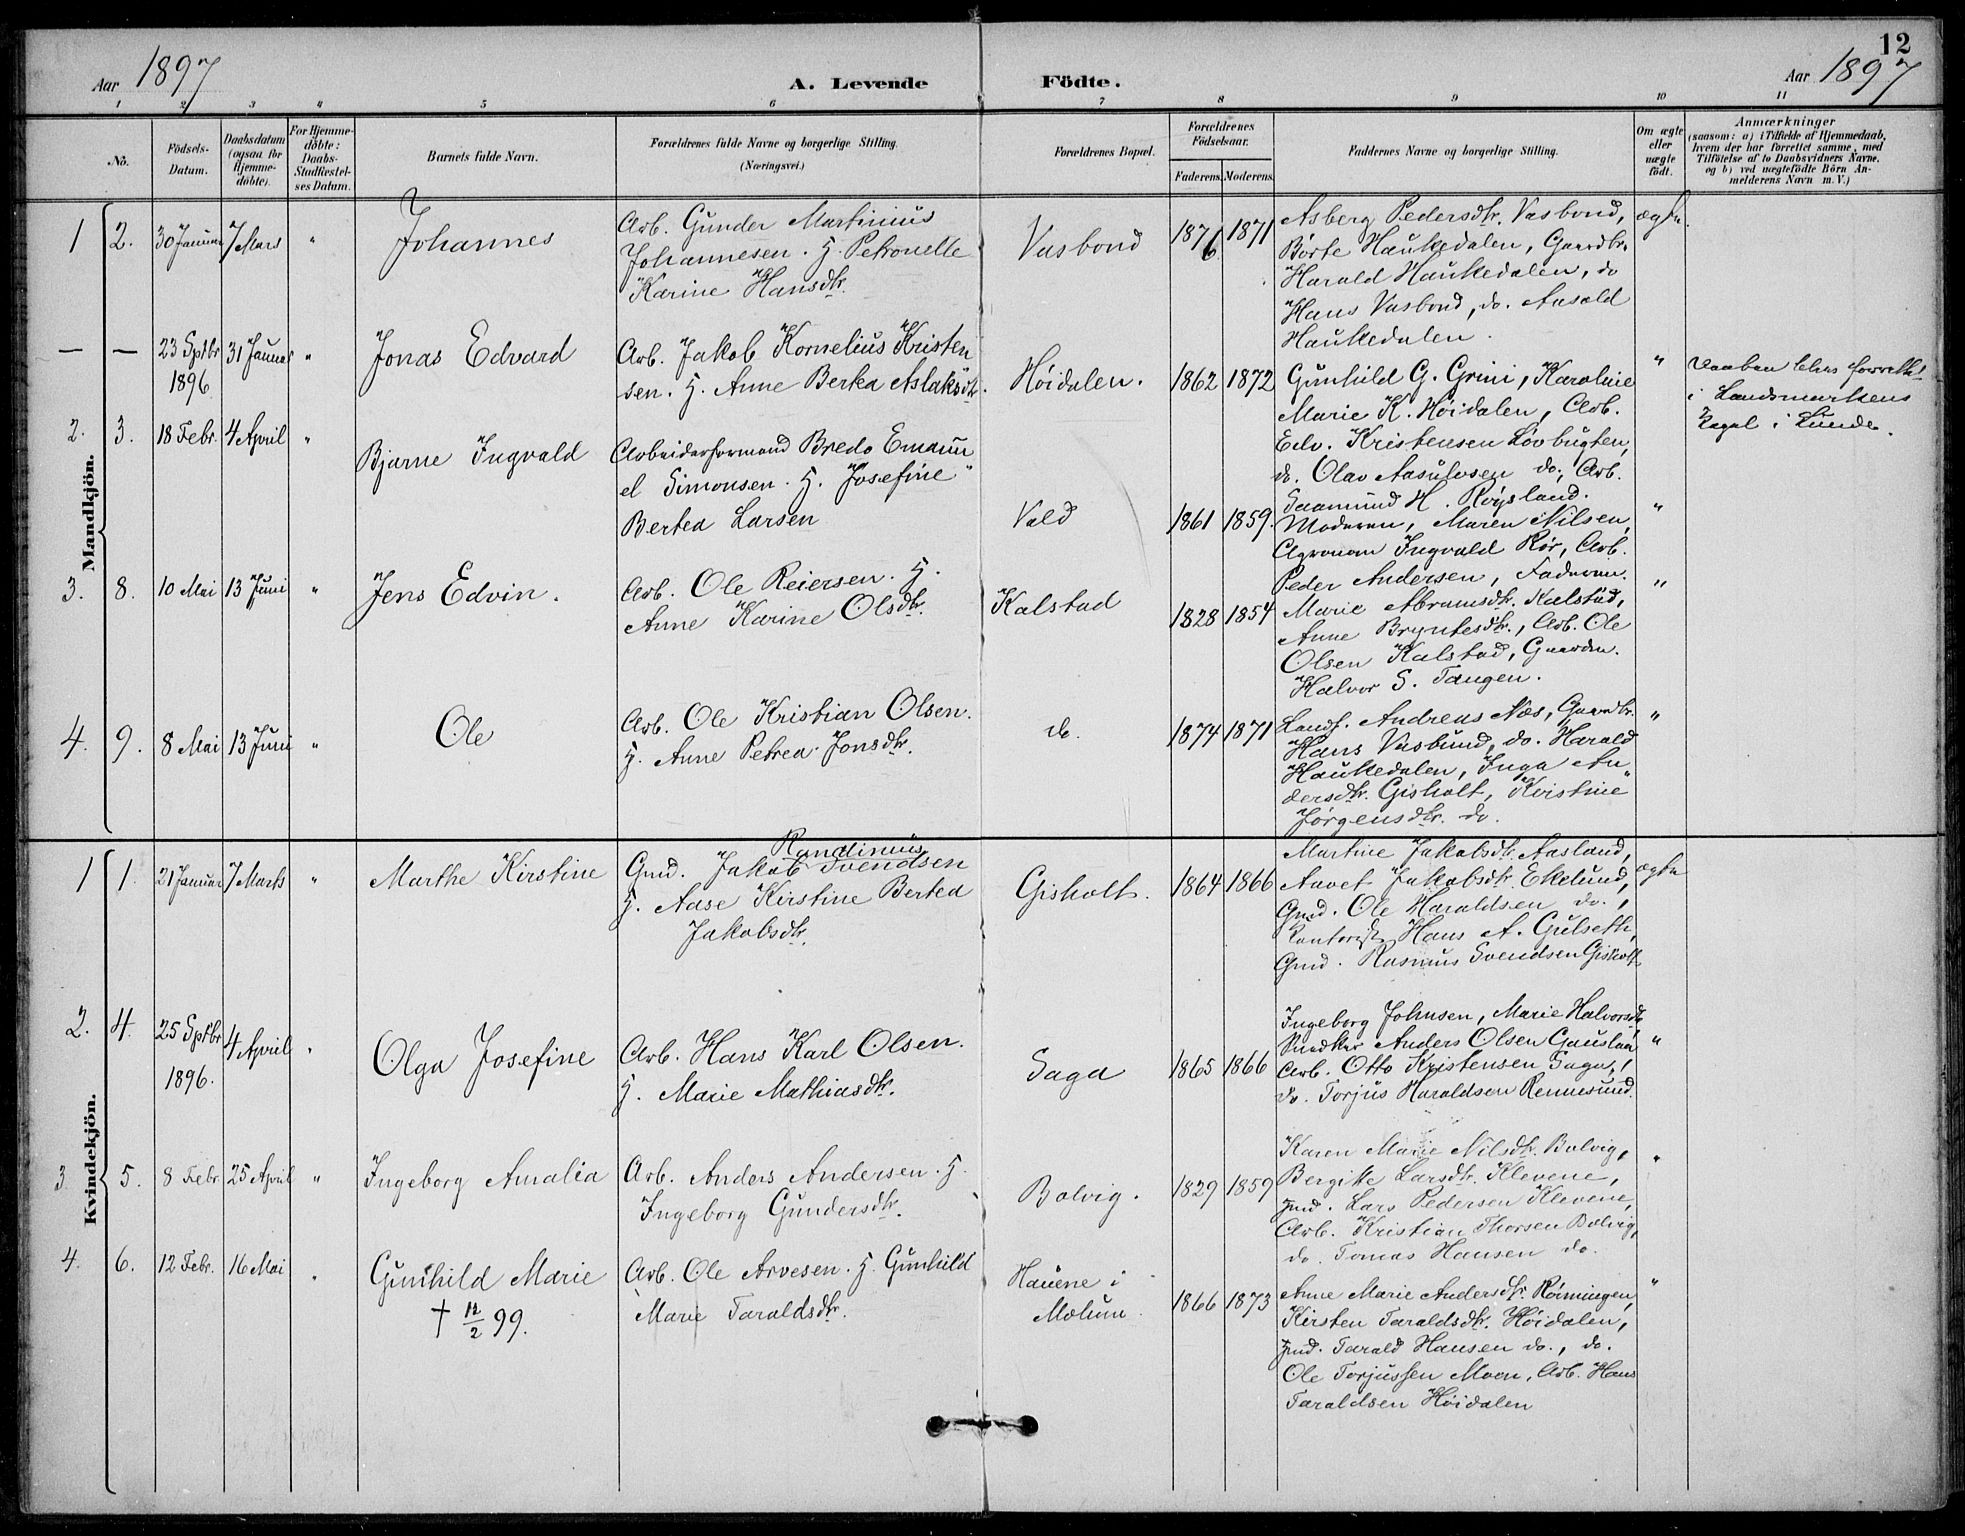 12
Aar 1897
A. Levende Födte.
Aar 1897
1 2 3 4 5 6 7 8 9 10 11
No.
Födsels-Datum.
Daabsdatum (ogsaa for Hjemme-döbte).
For Hjemme-döbte: Daabs-Stadfestel-ses Datum.
Barnets fulde Navn.
Forældrenes fulde Navne og borgerlige Stilling. (Næringsvei.)
Forældrenes Bopæl.
Forældrenes Födselsaar.
Faderens. Moderens.
Faddernes Navne og borgerlige Stilling.
Om ægte eller uægte födt.
Anmærkninger
(saasom: a) i Tilfælde af Hjemmedaab,
hvem der har forrettet samme, med
Tilföielse af to Daabsvidners Navne.
og b) ved uægtefödte Börn An-
melderens Navn m. V.)
Mandkjön.
1 2. 30 Januar 7 Mars " Johannes
Arb. Gunder Martinius
Johannesen. H. Petronelle
Karine Hansdtr.
Vasbond 1876 1871
Asberg Pedersdtr. Vasbond,
Börte Haukedalen, Gaardbr.
Harald Haukedalen, do
Hans Vasbond, do. Ansold
Haukedalen.
ægte.
— — 23 Sptbr 1896 31 Januar " Jonas Edvard
Arb. Jakob Kornelius Kristen
sen. H. Anne Berta Aslaksdtr.
Höidalen. 1862 1872
Gunhild G. Grini, Karoline
Marie K. Höidalen, Arb.
Edv. Kristensen Lövbugten,
do. Olav Aasulvsen do., Arb.
Saamund H. Röysland.
"
Daaben blev forrettet
i Landsmarkens
Kapel i Lunde.
2. 3. 18 Febr. 4 April " Bjarne Ingvald
Arbeiderformand Bredo Emanu
el Simonsen. H. Josefine
Bertea Larsen
Vald 1861 1859.
Moderen, Maren Nilsen,
Agronom Ingvald Rör, Arb.
Peder Andersen, Faderen.
"
3. 8. 10 Mai 13 Juni " Jens Edvin.
Arb. Ole Reiersen. H.
Anne Karine Olsdtr.
Kalstad 1828 1854
Marie Abramsdtr. Kalstad,
Anne Bryntesdtr., Arb. Ole
Olsen Kalstad, Gaardm.
Halvor S. Tangen.
"
4. 9. 8 Mai 13 Juni " Ole
Arb. Ole Kristian Olsen.
H. Anne Petrea Jonsdtr.
do. 1874 1871
Landh. Andreas Næs, Gaardbr.
Hans Vasbund, do. Harald
Haukedalen, Inga An
dersdtr. Gisholt, Kristine
Jörgensdtr. do.
"
Kvindekjön.
1 1. 21 Januar 7 Marts " Marthe Kirstine
Randinius
Gmd. Jakob Svendsen
H. Aase Kirstine Bertea
Jakobsdtr.
Gisholt. 1864 1866
Martine Jakobsdtr. Aasland,
Anvet Jakobsdtr. Ekelund,
Gmd. Ole Haraldsen do.,
Kontorist Hans A. Gulseth,
Gmd. Rasmus Svendsen Gisholt
ægte
2. 4. 25 Sptbr 1896. 4 April " Olga Josefine
Arb. Hans Karl Olsen.
H. Marie Mathiasdtr.
Saga 1865 1866
Ingeborg Johnsen, Marie Halvorsdtr.
Snedker Anders Olsen Gauslaa
Arb. Otto Kristensen Saga,
do. Torjus Haraldsen Rennesund.
"
3. 5. 8 Febr. 25 April " Ingeborg Amalia
Arb. Anders Andersen. H.
Ingeborg Gundersdtr.
Bolvig. 1829 1859
Karen Marie Nilsdtr. Bolvig,
Bergitte Larsdtr. Klevene,
gmd. Lars Pedersen Klevene,
Arb. Kristian Thorsen Bolvig,
do. Tomas Hansen do.
"
4. 6. 12 Febr. 16 Mai " Gunhild Marie
† 12/2 99.
Arb. Ole Arvesen. H. Gunhild
Marie Taraldsdtr.
Hauene i
Melum 1866 1873
Anne Marie Andersdtr. Römingen,
Kirsten Taraldsdtr. Höidalen,
gmd. Tarald Hansen do., do.
Ole Torjussen Moen, Arb. Hans
Taraldsen Höidalen
"